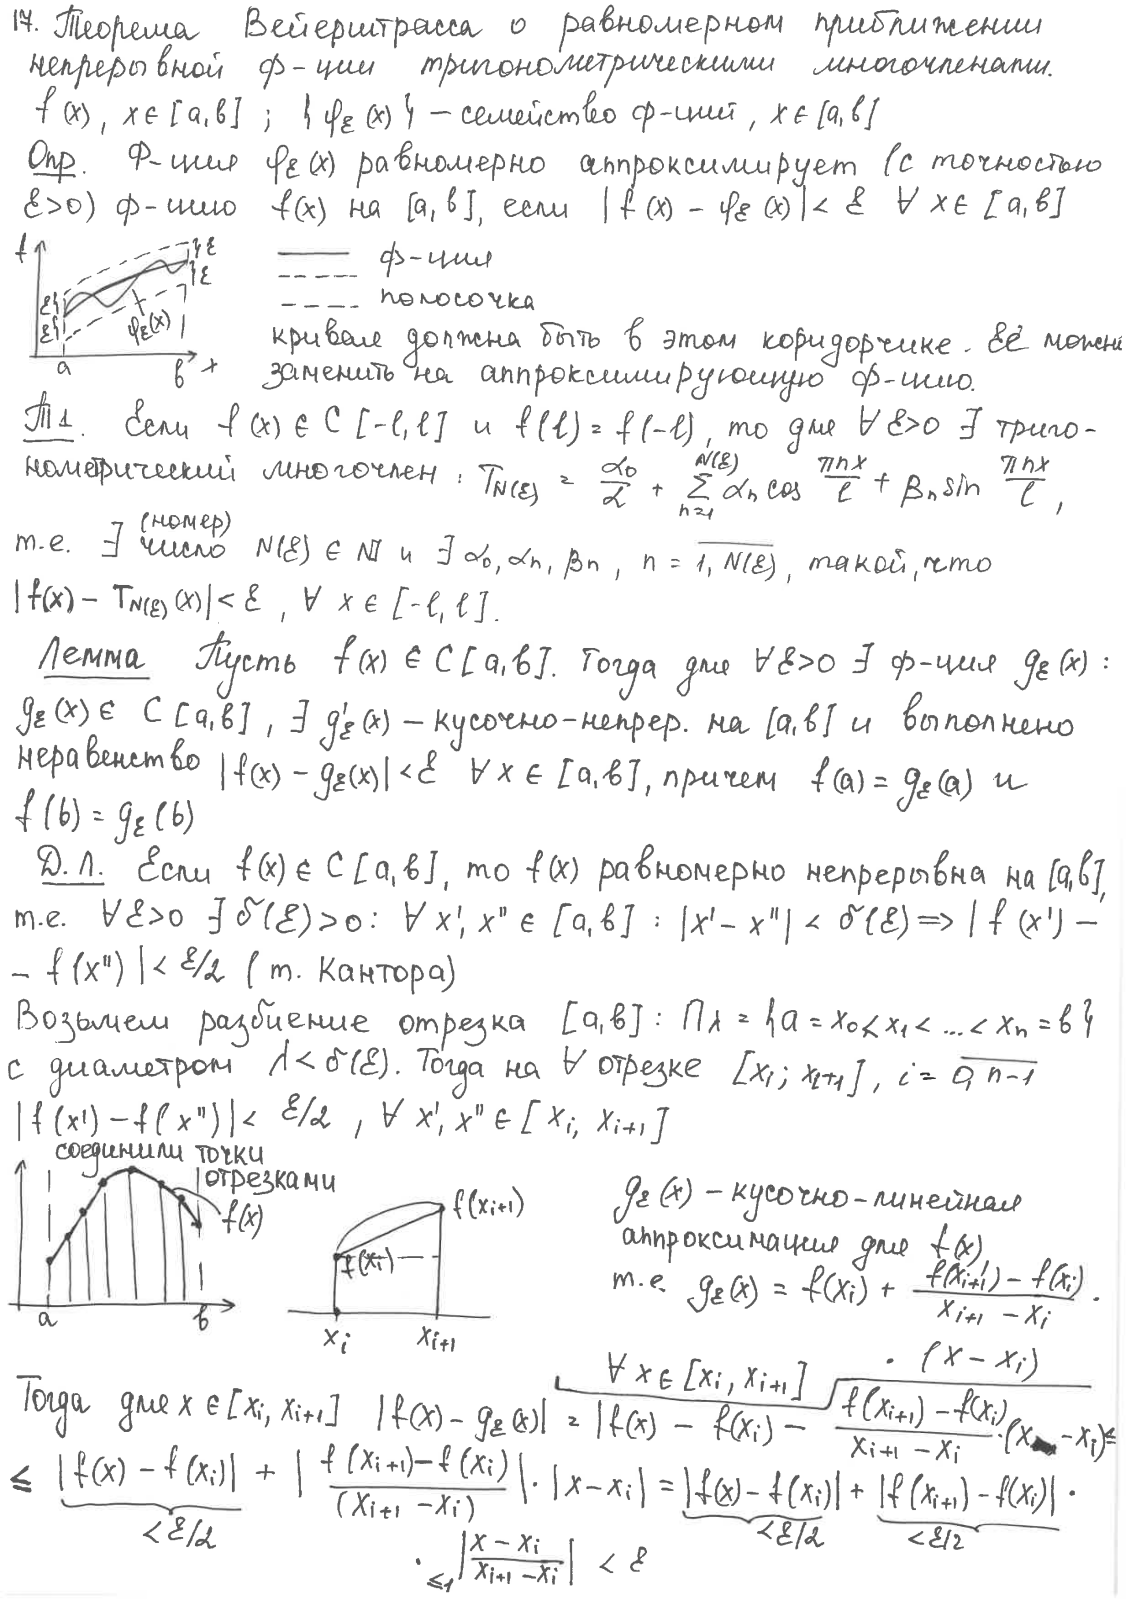 17. Теорема Вейерштрасса о равномерном приближении
непрерывной ф-ции тригонометрическими многочленами.
f(x), x∈[a,b] ; {φ_ε(x)} – семейство ф-ций, x∈[a,b]
Опр. Ф-ция φ_ε(x) равномерно аппроксимирует (с точностью
ε>0) ф-цию f(x) на [a,b], если |f(x) – φ_ε(x)| < ε ∀ x∈[a,b]
f ε ε ε ε φ_ε(x) a b x
—— ф-ция
----- полосочка
кривая должна быть в этом коридорчике. Её можн
заменить на аппроксимирующую ф-цию.
Т1. Если f(x)∈C[-l,l] и f(l)=f(-l), то для ∀ε>0 ∃ триго-
нометрический многочлен: T_{N(ε)} = α₀/2 + Σ_{n=1}^{N(ε)} α_n cos πnx/l + β_n sin πnx/l,
т.е. ∃ (номер) число N(ε)∈ℕ и ∃ α₀, α_n, β_n, n = \overline{1, N(ε)}, такой, что
|f(x) – T_{N(ε)}(x)| < ε, ∀ x∈[-l, l].
Лемма Пусть f(x)∈C[a,b]. Тогда для ∀ε>0 ∃ ф-ция g_ε(x):
g_ε(x)∈C[a,b], ∃ g'_ε(x) – кусочно-непрер. на [a,b] и выполнено
неравенство |f(x) – g_ε(x)| < ε ∀ x∈[a,b], причем f(a) = g_ε(a) и
f(b) = g_ε(b)
Д.Л. Если f(x)∈C[a,b], то f(x) равномерно непрерывна на [a,b],
т.е. ∀ε>0 ∃ δ(ε)>0: ∀ x', x''∈[a,b] : |x' – x''| < δ(ε) ⇒ |f(x') –
– f(x'')| < ε/2 (т. Кантора)
Возьмем разбиение отрезка [a,b]: П_λ = {a = x₀ < x₁ < ... < x_n = b}
с диаметром λ < δ(ε). Тогда на ∀ отрезке [x_i; x_{i+1}], i = \overline{0, n-1}
|f(x') – f(x'')| < ε/2, ∀ x', x''∈[x_i, x_{i+1}]
соединили точки
отрезками
f(x)
a b
f(x_i) f(x_{i+1})
x_i x_{i+1}
g_ε(x) – кусочно-линейная
аппроксимация для f(x)
т.е. g_ε(x) = f(x_i) + (f(x_{i+1}) – f(x_i))/(x_{i+1} – x_i) ·
· (x – x_i)
∀ x∈[x_i, x_{i+1}]
Тогда для x∈[x_i, x_{i+1}] |f(x) – g_ε(x)| = |f(x) – f(x_i) – (f(x_{i+1}) – f(x_i))/(x_{i+1} – x_i) · (x – x_i)| ≤
≤ |f(x) – f(x_i)| + |(f(x_{i+1}) – f(x_i))/(x_{i+1} – x_i)| · |x – x_i| = |f(x) – f(x_i)| + |f(x_{i+1}) – f(x_i)| ·
< ε/2 < ε/2 < ε/2
· |(x – x_i)/(x_{i+1} – x_i)| < ε
≤1